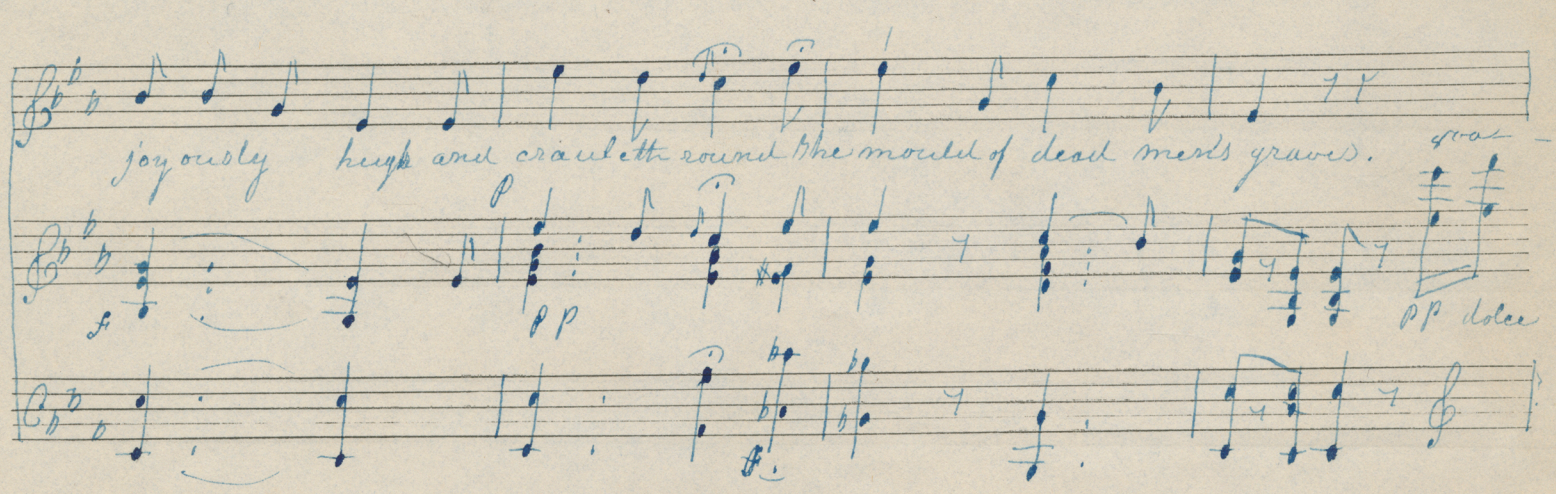 joyously hugh and crauleth round the mould of dead men's graves.
8va
p
f
pp
pp dolce